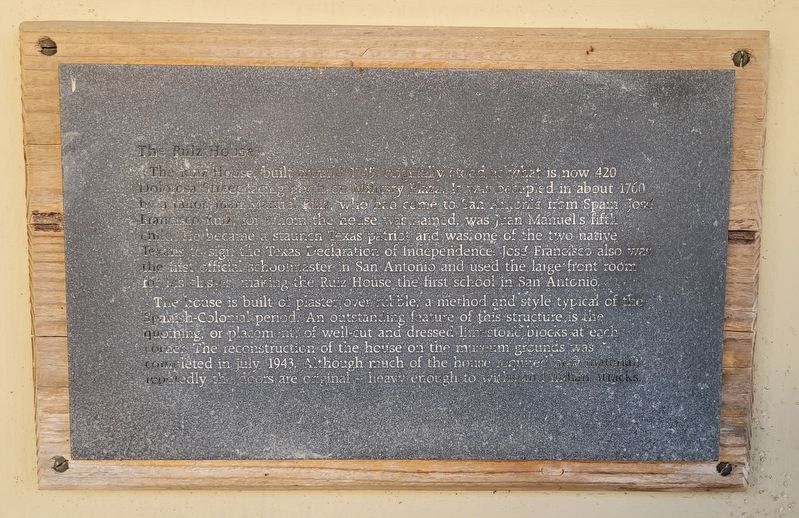 The Ruiz House
The Ruiz House, built around originally stood at what is now 420
Dolorosa Street facing north on Military Plaza. It was occupied in about 1760
by a tailor, Juan Manuel Ruiz, who had come to San Antonio from Spain. José
Francisco Ruiz, for whom the house was named, was Juan Manuel's fifth
child. He became a staunch Texas patriot and was one of the two native
Texans to sign the Texas Declaration of Independence. José Francisco also was
the first official schoolmaster in San Antonio and used the large front room
for his classes, making the Ruiz House the first school in San Antonio.
The house is built of plaster over rubble, a method and style typical of the
Spanish-Colonial period. An outstanding feature of this structure is the
quoining, or placement, of well-cut and dressed limestone blocks at each
corner. The reconstruction of the house on the museum grounds was
completed in july 1943. Although much of the house required new material,
reputedly the doors are original – heavy enough to withstand Indian attacks.